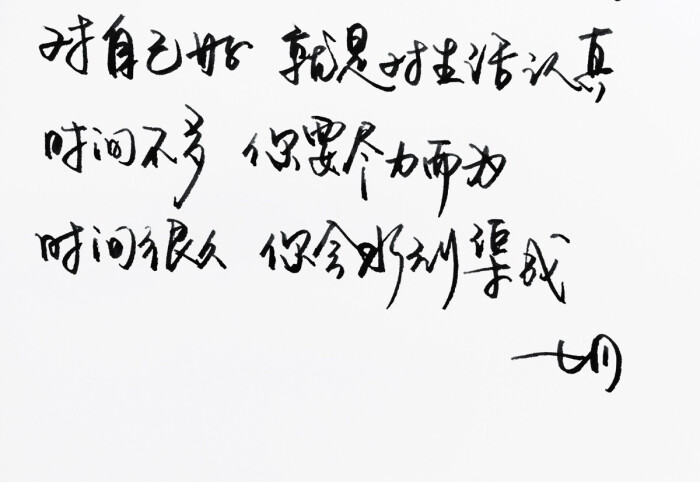 对自己好 就是对生活认真
时间不多 你要尽力而为
时间很久 你会水到渠成
一七川